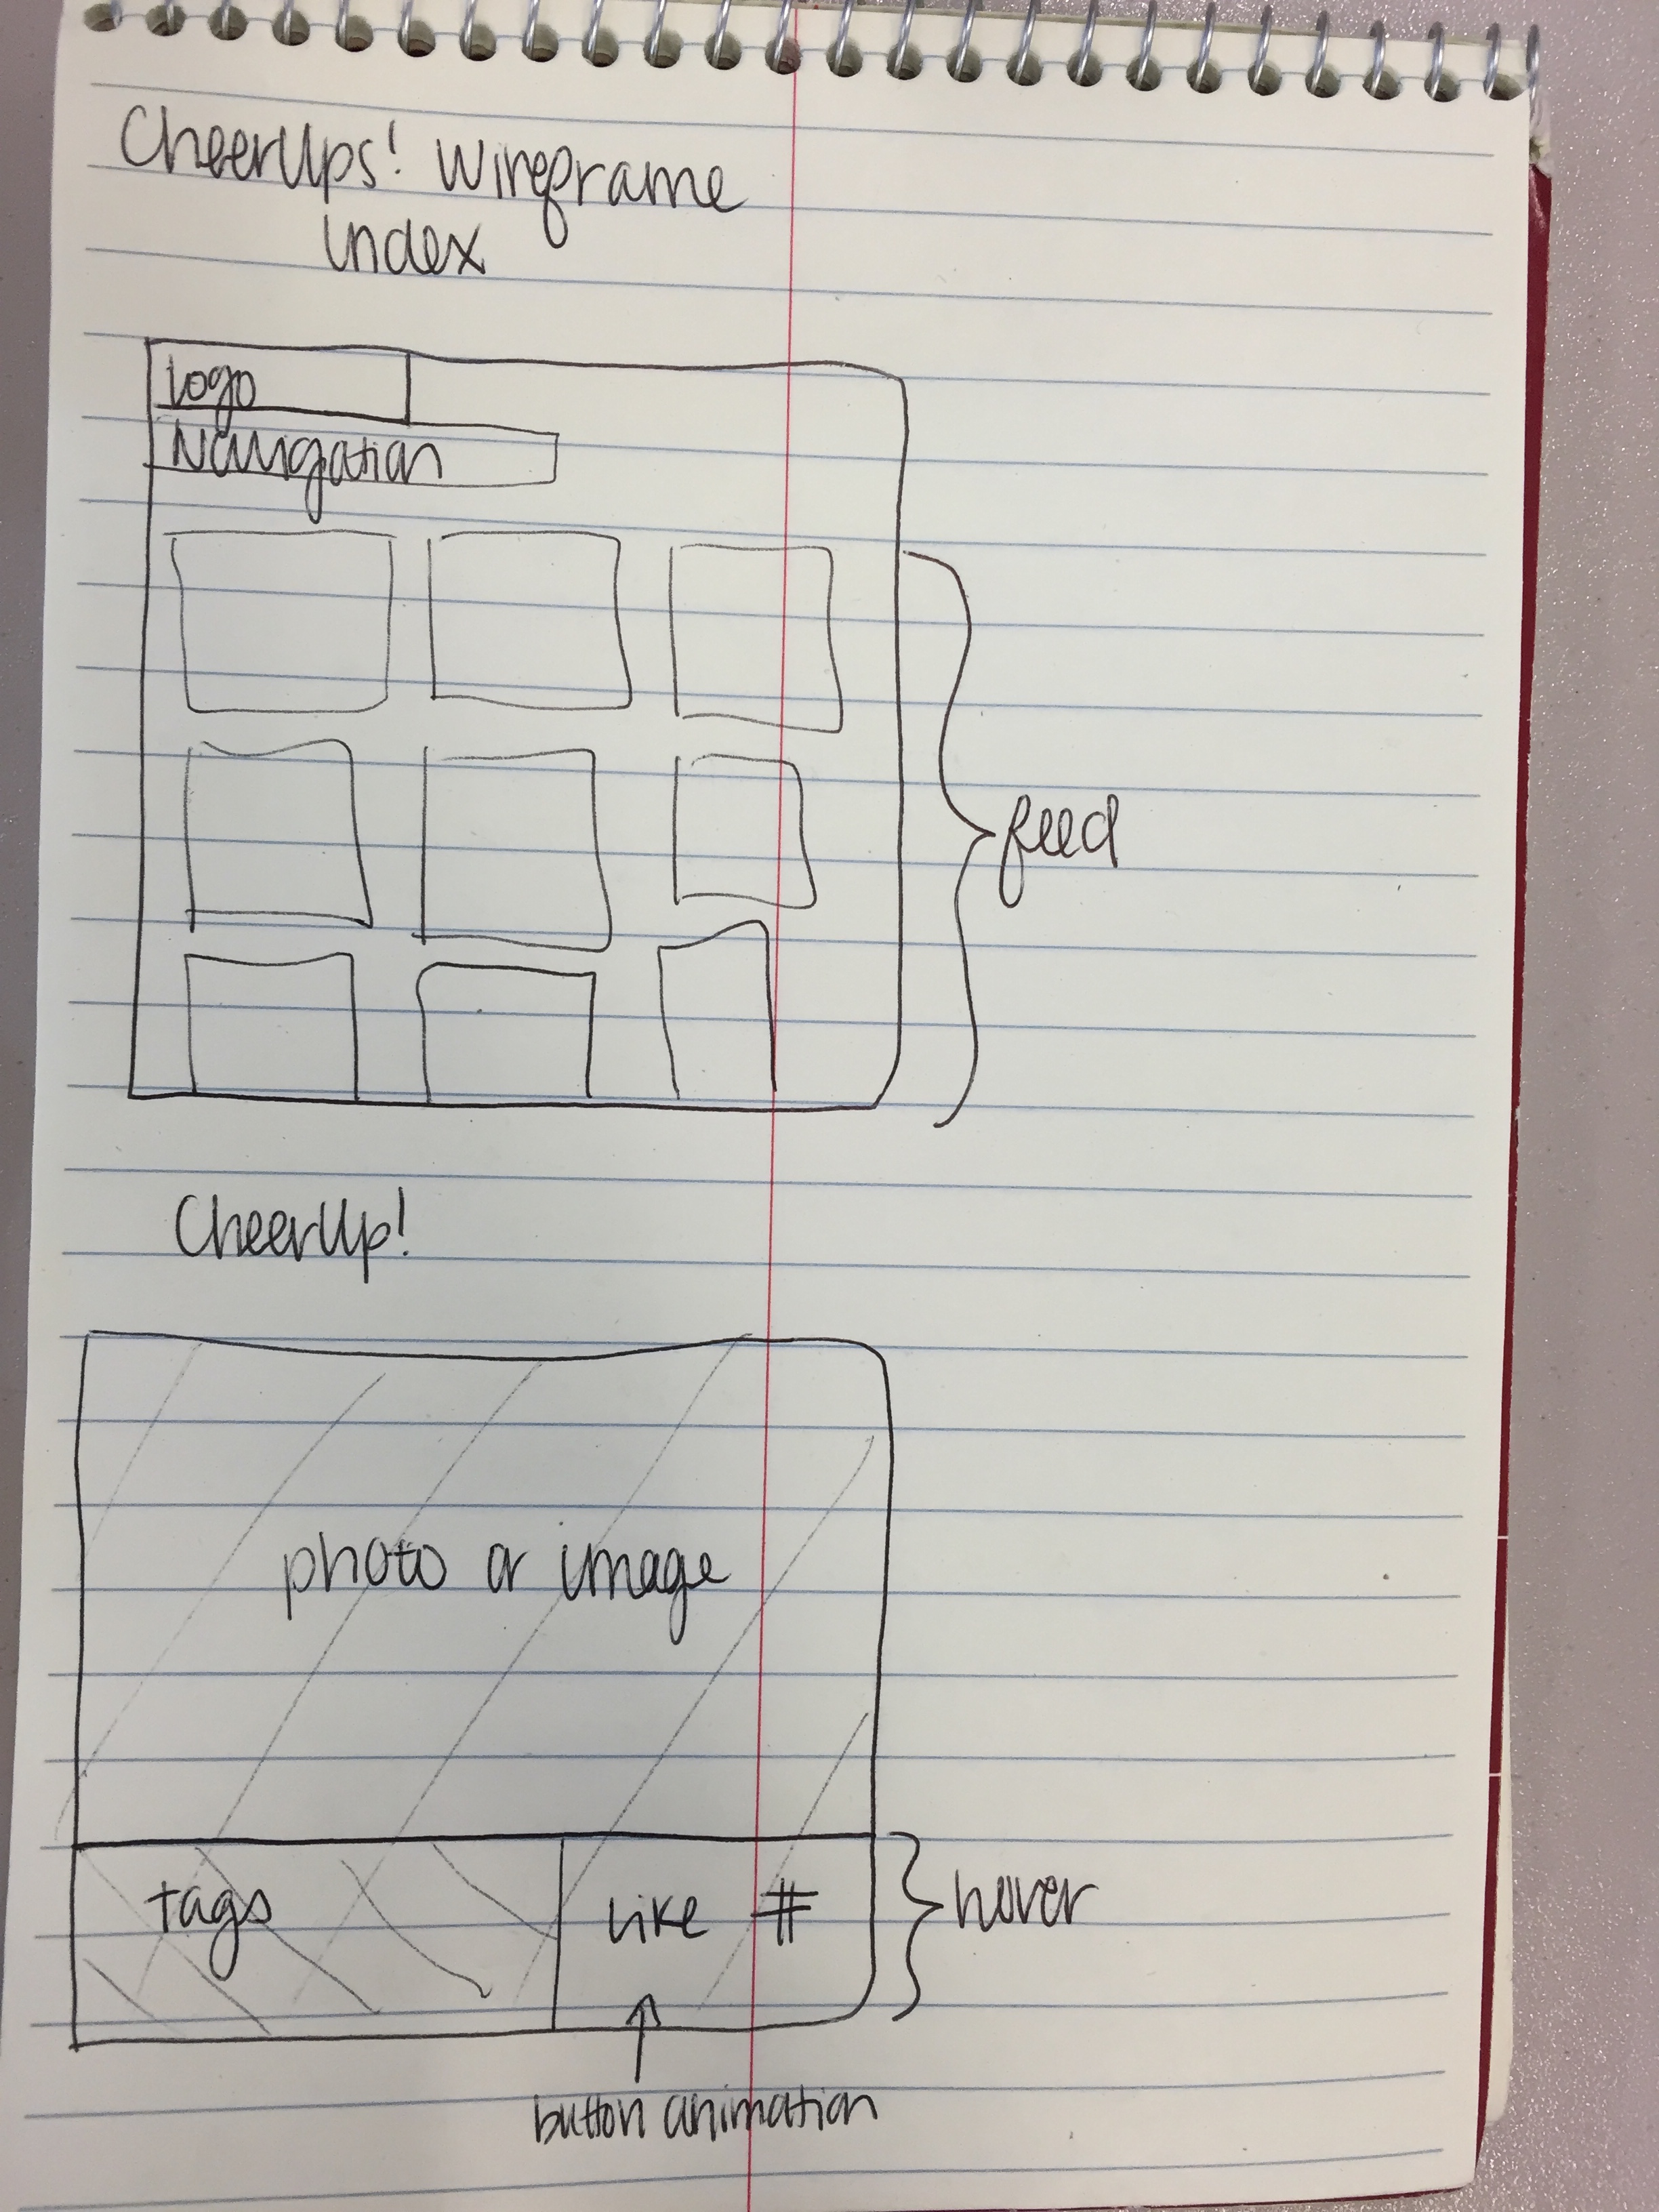 CheerUps! Wireframe
Index
Logo
Navigation
feed
CheerUp!
photo or image
tags
Like #
hover
button animation